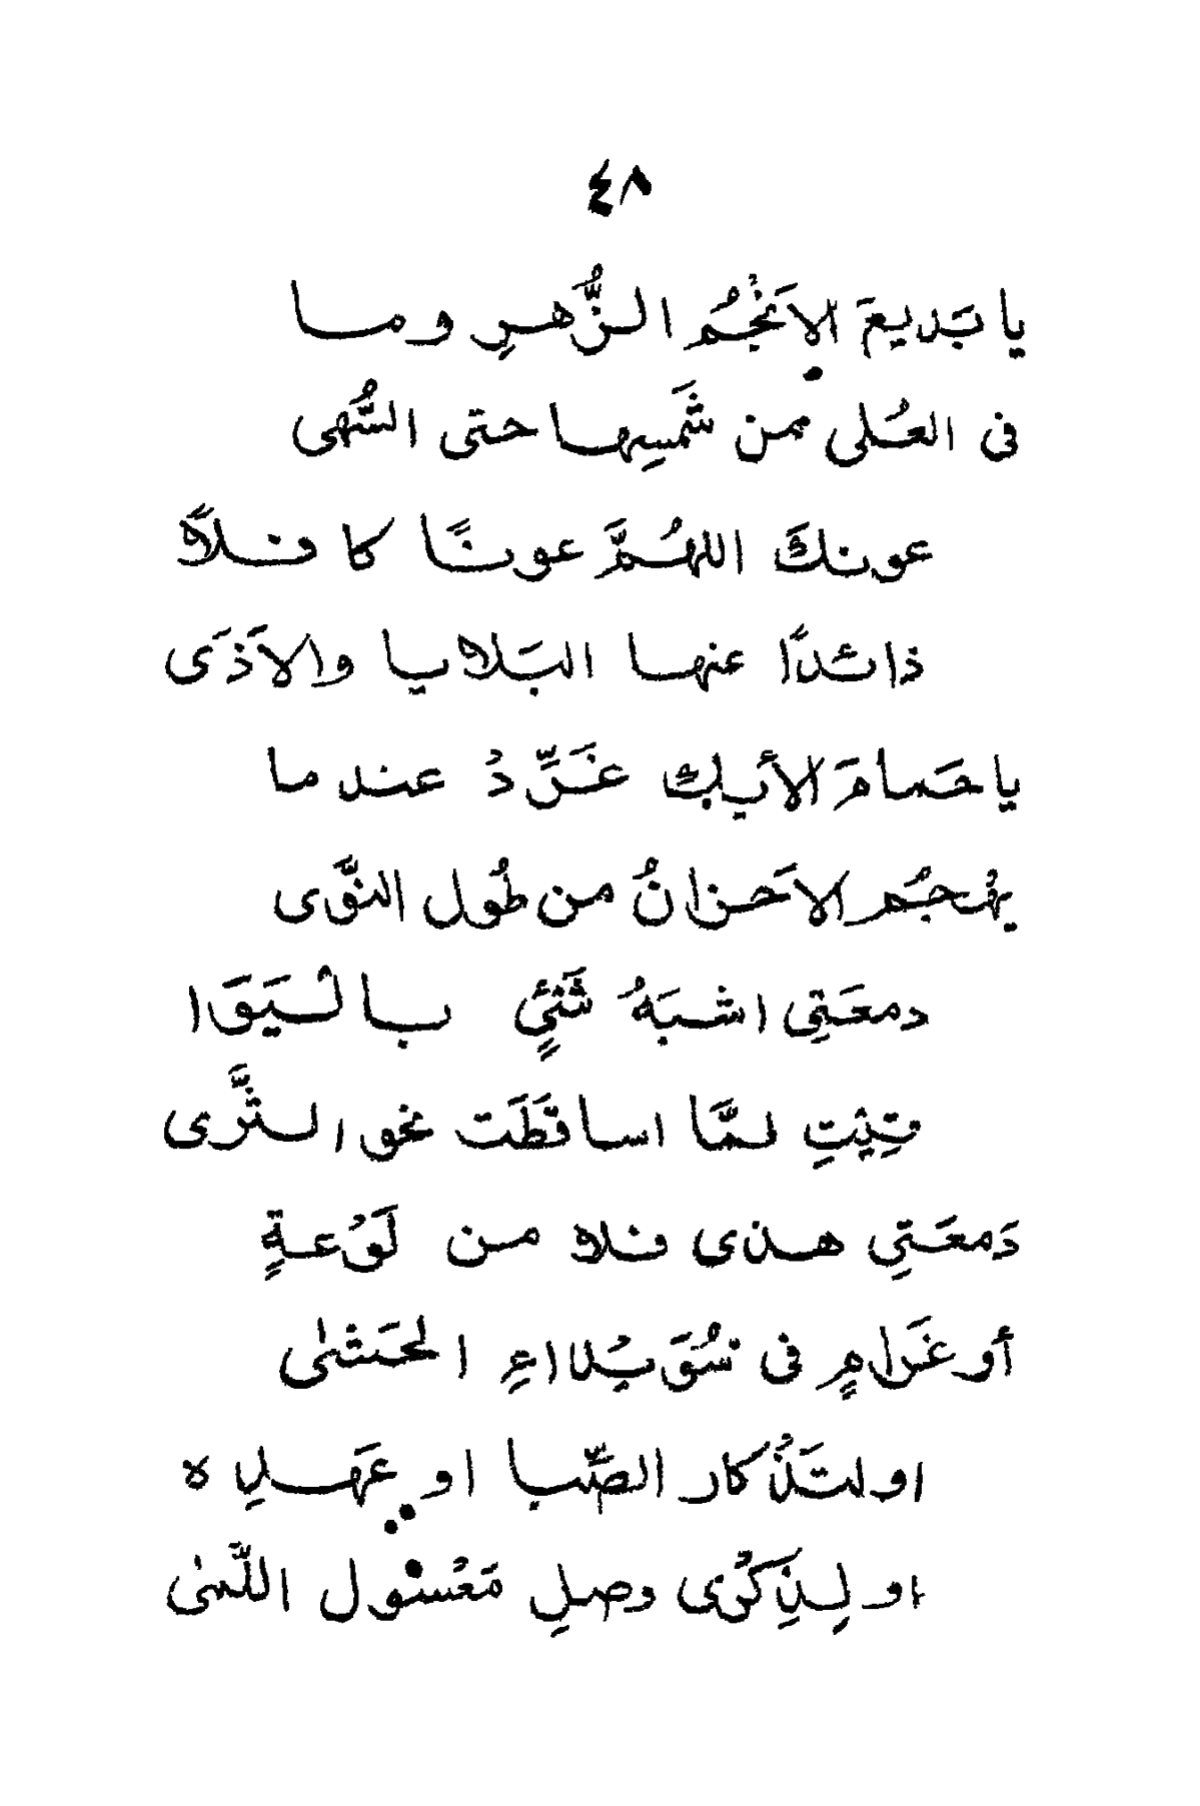 ٤٨
يا بَديعَ الاَنْجُمِ الزُّهرِ وما
فى العُلى من شَمسِها حتى السُّهى
عونكَ اللهُمَّ عونًا كافلاً
ذائدًا عنها البَلايا والاَذَى
يا حَمامَ الأيكِ غَرِّدْ عندما
يهْجُم الاَحزانُ من طُول النَّوى
دمعَتِى اشبَهُ شَئٍ باليَوَا
قِيتِ لمَّا اساقَطَت نحو الثَّرى
دَمعَتِى هذى فلا من لَوْعةٍ
أو غَرامٍ فى سُوَيْداءِ الحَشٰى
او لتَذْكار الصِّبا او عَهدِه
او لِذِكْرى وصلِ مَعْسُول اللَّمٰى